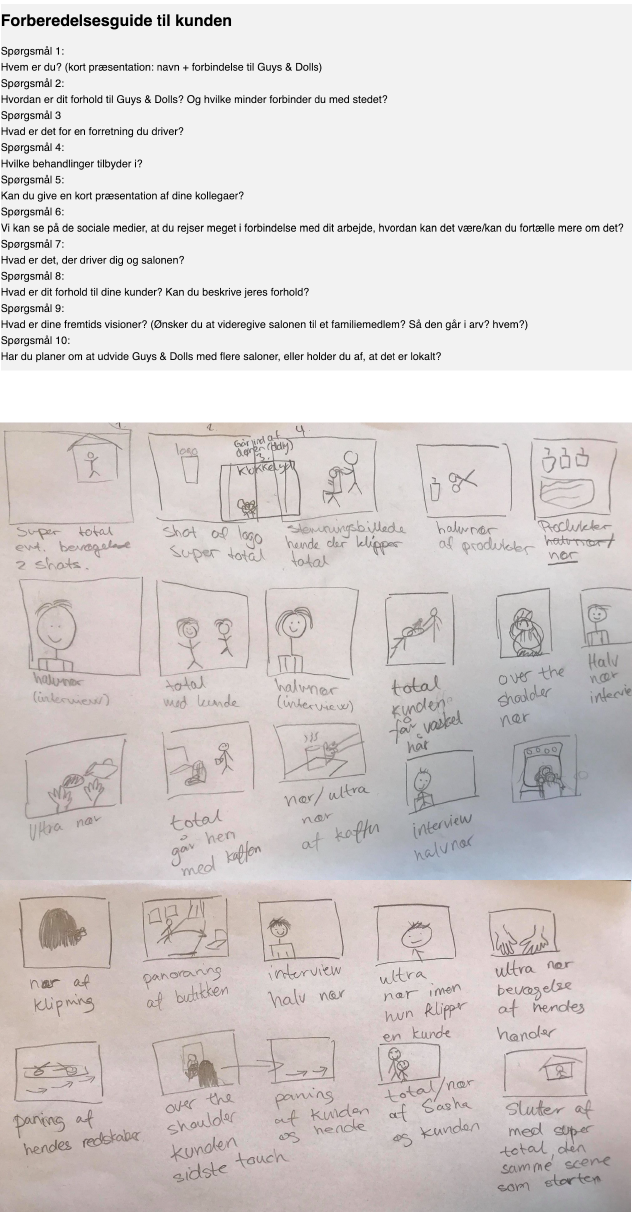 Forberedelsesguide til kunden
Spørgsmål 1:
Hvem er du? (kort præsentation: navn + forbindelse til Guys & Dolls)
Spørgsmål 2:
Hvordan er dit forhold til Guys & Dolls? Og hvilke minder forbinder du med stedet?
Spørgsmål 3
Hvad er det for en forretning du driver?
Spørgsmål 4:
Hvilke behandlinger tilbyder i?
Spørgsmål 5:
Kan du give en kort præsentation af dine kollegaer?
Spørgsmål 6:
Vi kan se på de sociale medier, at du rejser meget i forbindelse med dit arbejde, hvordan kan det være/kan du fortælle mere om det?
Spørgsmål 7:
Hvad er det, der driver dig og salonen?
Spørgsmål 8:
Hvad er dit forhold til dine kunder? Kan du beskrive jeres forhold?
Spørgsmål 9:
Hvad er dine fremtids visioner? (Ønsker du at videregive salonen til et familiemedlem? Så den går i arv? hvem?)
Spørgsmål 10:
Har du planer om at udvide Guys & Dolls med flere saloner, eller holder du af, at det er lokalt?
4.
logo
Går ind af
døren
3.
Klokkelyd
Super total
evt. bevægelse
2 shots.
Shot of logo
Super total
Stemningsbillede
hende der klipper
total
halvnær
af produkter
Produkter
halvnær/
nær
halvnær
(interview)
total
med kunde
halvnær
(interview)
total
kunden
får vasket
hår
over the
shoulder
nær
Halv
nær
intervie
Ultra nær
total
går hen
med kaffen
nær/ultra
nær
af kaffen
interview
halvnær
nær af
klipning
panoraning
af butikken
interview
halv nær
ultra
nær imen
hun klipper
en kunde
ultra nær
bevægelse
af hendes
hænder
paning af
hendes redskaber
over the
shoulder
kunden
sidste touch
paning
af kunden
og hende
total/nær
af Sasha
og kunden
Slutter af
med super
total, den
samme scene
som starten